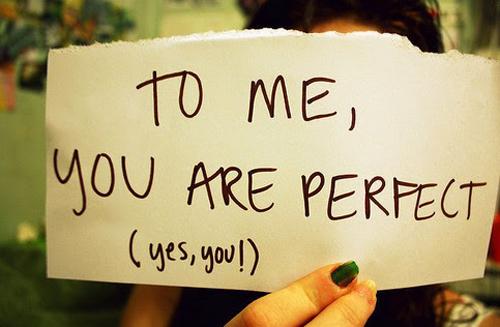 TO ME,
YOU ARE PERFECT
(yes, you!)